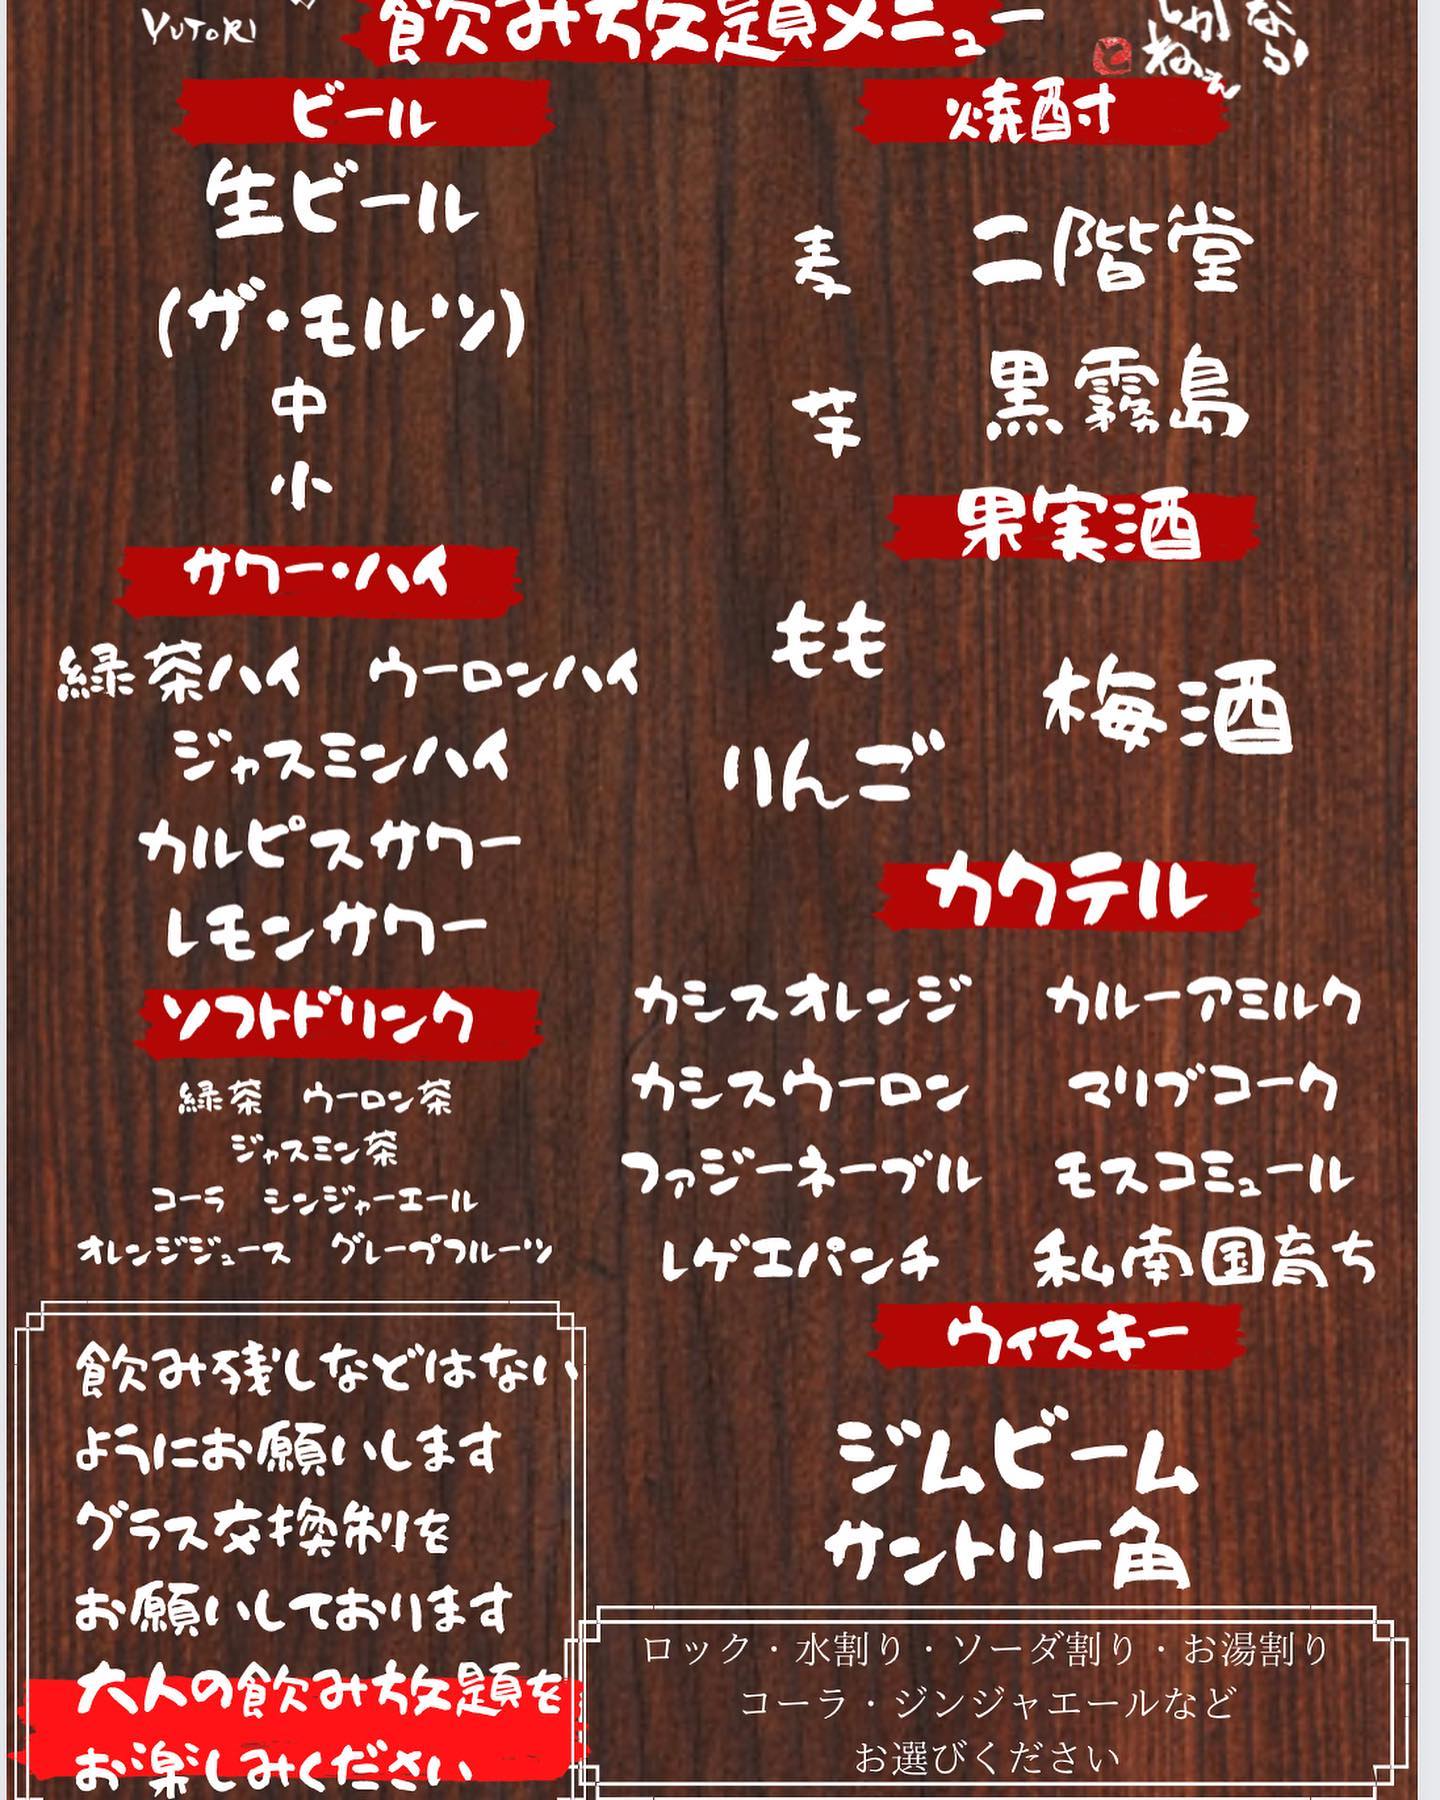 YUTORI
飲み放題メニュー
ビール
生ビール
(ザ・モルツ)
中
小
サワー・ハイ
緑茶ハイ ウーロンハイ
ジャスミンハイ
カルピスサワー
レモンサワー
ソフトドリンク
緑茶 ウーロン茶
ジャスミン茶
コーラ シンジャーエール
オレンジジュース グレープフルーツ
飲み残しなどはない
ようにお願いします
グラス交換制を
お願いしております
大人の飲み放題を
お楽しみください
焼酎
麦 二階堂
芋 黒霧島
果実酒
もも
梅酒
りんご
カクテル
カシスオレンジ カルーアミルク
カシスウーロン マリブコーク
ファジーネーブル モスコミュール
レゲエパンチ 私南国育ち
ウィスキー
ジムビーム
サントリー角
ロック・水割り・ソーダ割り・お湯割り
コーラ・ジンジャエールなど
お選びください